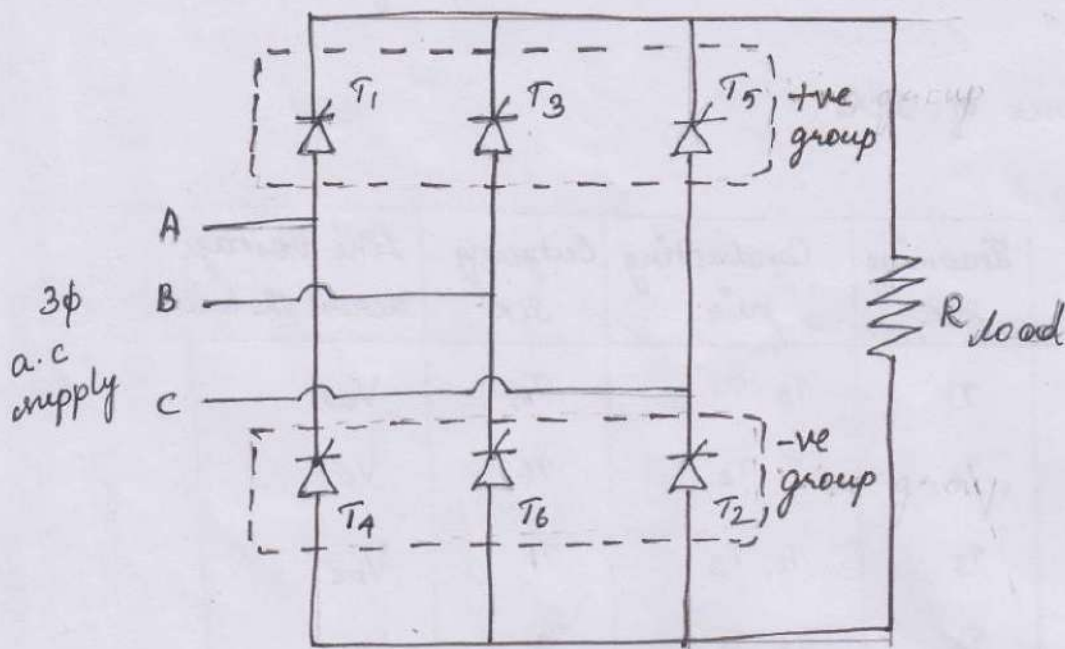 T1
T3
T5
+ve
group
A
B
C
3ϕ
a.c
supply
R load
-ve
group
T4
T6
T2